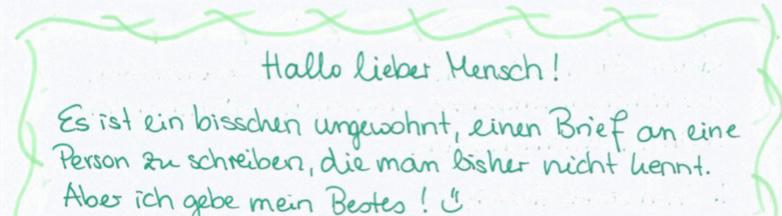 Hallo lieber Mensch!
Es ist ein bisschen ungewohnt, einen Brief an eine
Person zu schreiben, die man bisher nicht kennt.
Aber ich gebe mein Bestes! ☺